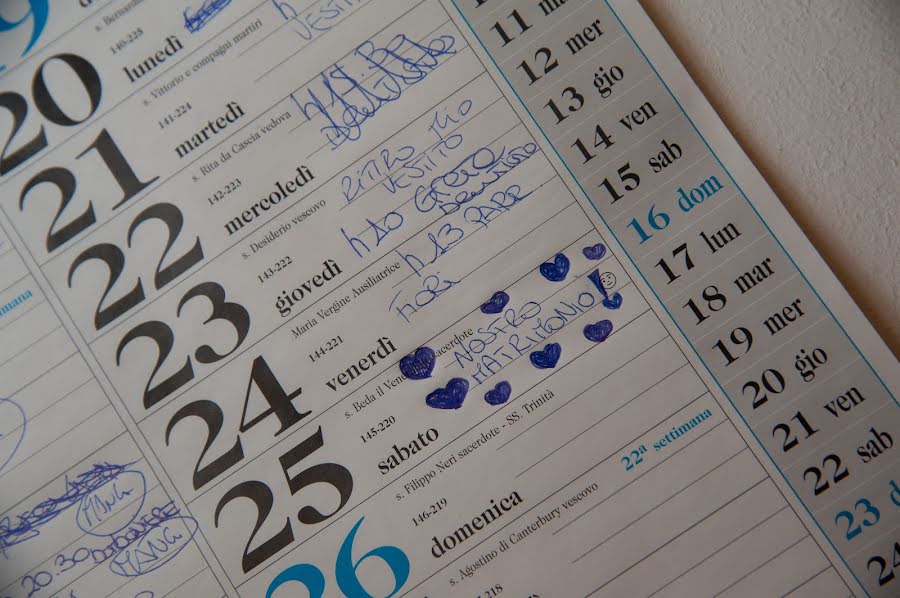 s. Bernardi
20
140-225
lunedì
s. Vittorio e compagni martiri
VESTIT
21
141-224
martedì
s. Rita da Cascia vedova
22
142-223
mercoledì
s. Desiderio vescovo
RITIRO MIO
VESTITO
23
143-222
giovedì
Maria Vergine Ausiliatrice
h 10 GRECO
h 13 PAPÀ
24
144-221
venerdì
s. Beda il Ven sacerdote
FIORI
25
145-220
sabato
s. Filippo Neri sacerdote - SS. Trinità
NOSTRO
MATRIMONIO!
26
146-219
domenica
s. Agostino di Canterbury vescovo
22ª settimana
-218
imana
MANG
20.30
MANG
11 ma
12 mer
13 gio
14 ven
15 sab
16 dom
17 lun
18 mar
19 mer
20 gio
21 ven
22 sab
23 d
24